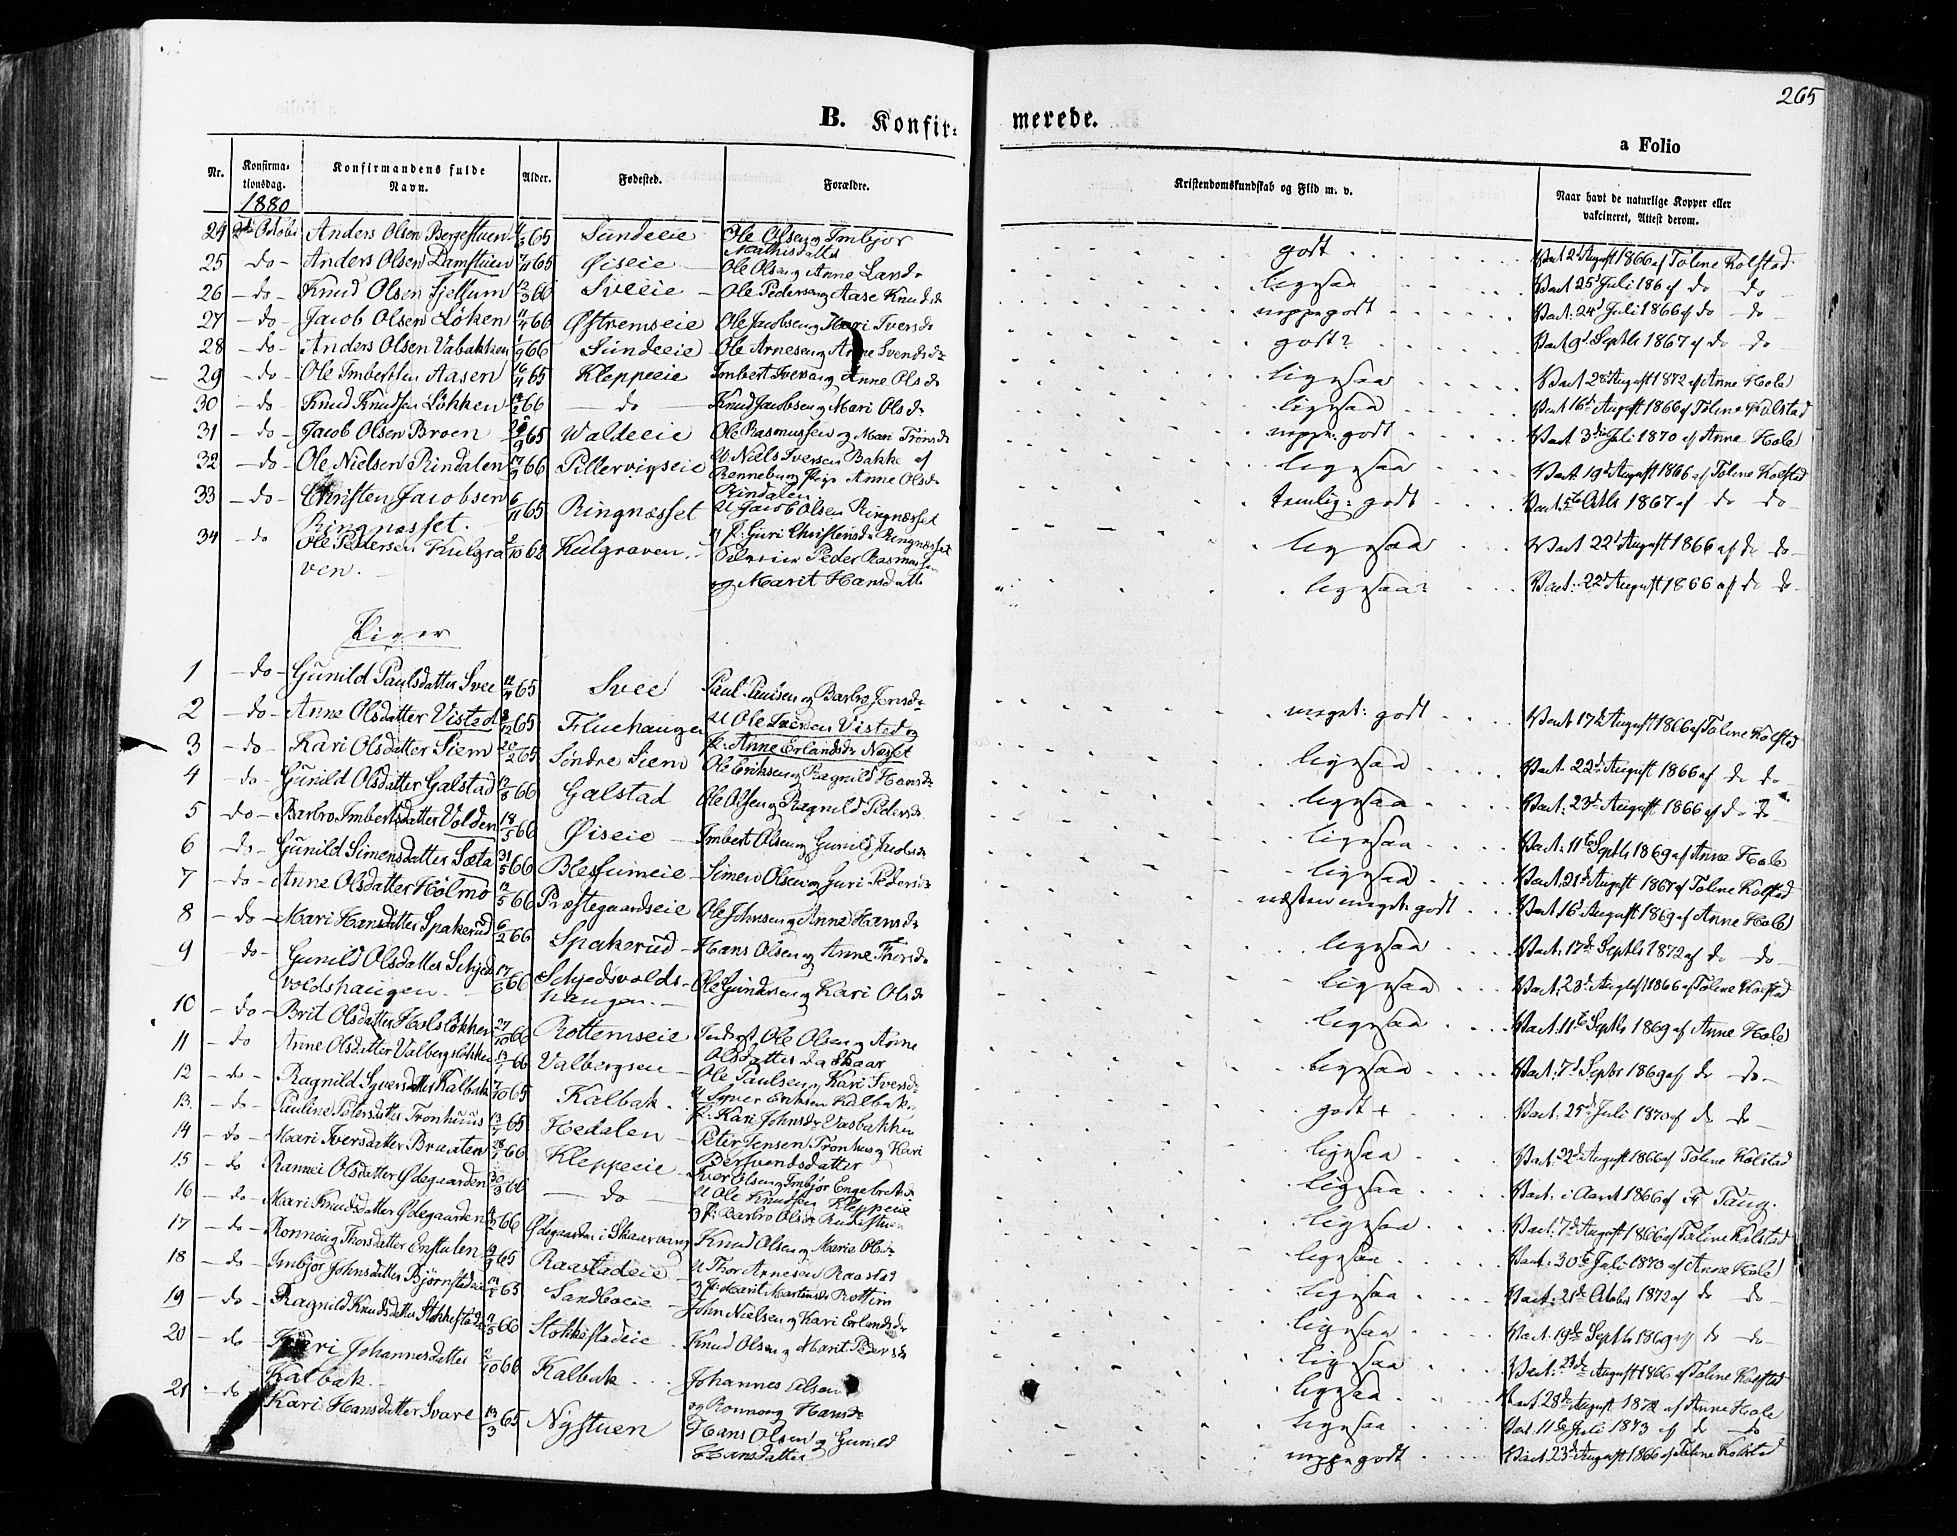 265
B. Konfir= merede.
a Folio
Nr. Konfirma-tionsdag. Konfirmandens fulde Navn. Alder. Fødested. Forældre. Kristendomskundskab og Flid m. v. Naar havt de naturlige Kopper eller vakcineret, Attest derom.
1880
24 Anders Olsen Bergestuen 65 Sundeeie Ole Olsen og Imbjør Mathisdatter godt Vact 2d August 1866 af Toline Kolstad
25 - do - Anders Olsen Damstuen 7/11 65 Øiseie Ole Olsen og Anne Larsd. ligesaa Vact 25d Juli 186 af do do
26 - do - Knud Olsen 12/3 66 Sveeie Ole Pedersen og Aase Knudsd. Vact. 24d Juli 1866 af do - do -
27 - do - Jacob Olsen Løken 11/4 66 Østremseie Ole Jacobsen og Kari Iversd. godt? Vact 9d Septbr 1867 af do do -
28 - do - Anders Olsen Vabakken 66 Sundeeie Ole Arnesen og Anne Svendsdr ligesaa Vact 28d August 1872 af Anne Hole
29 - do - Ole Imbertsen Aasen 16/11 65 Kleppeeie Imbert Iversen og Anne Olsdr ligesaa Vact 16d August 1866 af Toline Kolstad
30 - do - Knud Knudsen Løkken 66 - do - Knud Jacobsen og Mari Olsdr godt Vact 3die Juli 1870 af Anne Hole
31 - do - Jacob Olsen Broen 65 Waldeeie Ole Rasmussen og Mari Trønsdr ligesaa Vact. 19d August 1866 af Toline Kolstad
32 - do - Ole Nielsen Rindalen 17/9 66 Pillervigseie U Niels Iversen Bakke af Rennebu og Pige Anne Olsdr Rindalen temlig: godt Octbr 1867 af do do
33 - do - Christen Jacobsen Ringnæsset. 6/11 65 Ringnæsset U Jacob Olsen Ringnæsset og p. Guri Christensdr Ringnæsset ligesaa Vact 22d August 1866 af do do
34 do Ole Pedersen Kulgraven. 10 62 Kulgraven. Peder Rasmussen og Marit Hansdatter ligesaa: Vact: 22d August 1866 af do do
Piger
1 - do - Gunild Paulsdatter Svee 65 Svee Paul Paulsen og Barbro Jonsdr meget: godt Vact 17d August 1866 af Toline Kolstad
2 - do - Anne Olsdatter Visted 12 65 Fluehaugen U Ole Iversen Visted og p. Anne Erlandsdr Næsset ligesaa Vact. 22d August 1866 af do do
3 - do - Kari Olsdatter Siem 20/2 65 Søndre Siem Ole Eriksen og Ragnild Hansdr ligesaa Vact. 23d August 1866 af do do
4 - do - Gunild Olsdatter Galstad 66 Galstad Ole Olsen og Ragnild Pedersdr ligesaa Vact. 11te Septbr 1869 af Anne Hole
5 - do - Barbro Imbertsdatter Volden 18/5 66 Øiseie Imbert Olsen og Gunild ligesaa Vact. 21d August 1867 af Toline Kolstad
6 - do - Gunild Simensdatter Sæta 31/5 66 Blessumeie Simen Olsen og Guri Pedersdr næsten meget godt Vact 16d August 1869 af Anne Hole
7 - do - Anne Olsdatter Holmo 5 66 Præstegaardseie Ole Johnsen og Anne Hansdr ligesaa Vact. 17de Septbr 1872 af do - do -
8 - do - Mari Hansdatter Spakerud 6/2 66 Spakerud Hans Olsen og Anne Thorsdr ligesaa Vact. 23d August 1866 af Toline Kolstad
9 - do - Gunild Olsdatter Schjedvoldshaugen. 17/6 66 Schjedsvoldshaugen. Ole Gundersen og Kari Olsdr ligesaa Vact. 11te Septbr 1869 af Anne Hole
10 - do - Brit Olsdatter Holsløkken 27/10 66 Rottemseie Indrst. Ole Olsen og Anne Olsdatter da Skaar ligesaa Vact. 7d Septbr 1869 af do - do -
11 - do Anne Olsdatter Valbergsløkken 66 Valbergseie Ole Paulsen og Kari Iversdr godt + Vact. 25d Juli 1870 af do do -
12 - do - Ragnild Syversdatter Kalbak 7/10 65 Kalbak U Syver Eriksen Kalbak og p. Kari Johnsdr Vasbakken ligesaa Vact. 22d August 1866 af Toline Kolstad
13. - do - Pauline Petersdatter Tronhuus 13/7 65 Hedalen Peter Jensen Tronhus og Kari Bersvendsdatter ligesaa Vact. i Aaret 1866 af Fr Tang.
14 - do - Mari Iversdatter Braaten 28/1 66 Kleppeeie Iver Olsen og Imbjør Engebretsdr ligesaa Vact. 7d August 1866 af Toline Kolstad
15 - do Rannei Olsdatter Ødegaarden 30/3 66 - do - U Ole Knudsen Kleppeeie og p: Barbro Olsdr ligesaa Vact. 30te Juli 1870 af Anne Hole
16 - do - Mari Knudsdatter Ødegaarden 66 Ødegaarden i Skaarvang Knud Olsen og Marie Olsdr ligesaa Vact. 21de Octobr 1872 af do do -
17 - do - Ronnoug Thorsdatter Enstulen 65 Raastadeie U Thor Arnesen Raastad og p: Marit Mortensdr Rottem ligesaa Vact. 19de Septbr 1869 af do - do -
18 - do Imbjør Johnsdatter Bjørnstadeie 65 Sandboeie John Nielsen og Kari Erlandsdr ligesaa Vact. 23de August 1866 af Toline Kolstad
19 - do - Ragnild Knudsdatter Stokkestadeie 66 Stokkestadeie Knud Olsen og Marit Pedersdr ligesaa Vact 28de August 1872 af Anne Hole
20 - do Kari Johannesdatter Kalbak. 10 66 Kalbak Johannes Olsen og Ronnoug Hansdr ligesaa Vact 11te Juli 1873 af do do
21 - do Kari Hansdatter Svare 13/3 65 Nystuen Hans Olsen og Gunild Hansdatter godt Vact. 23d August 1866 af Toline Kolstad